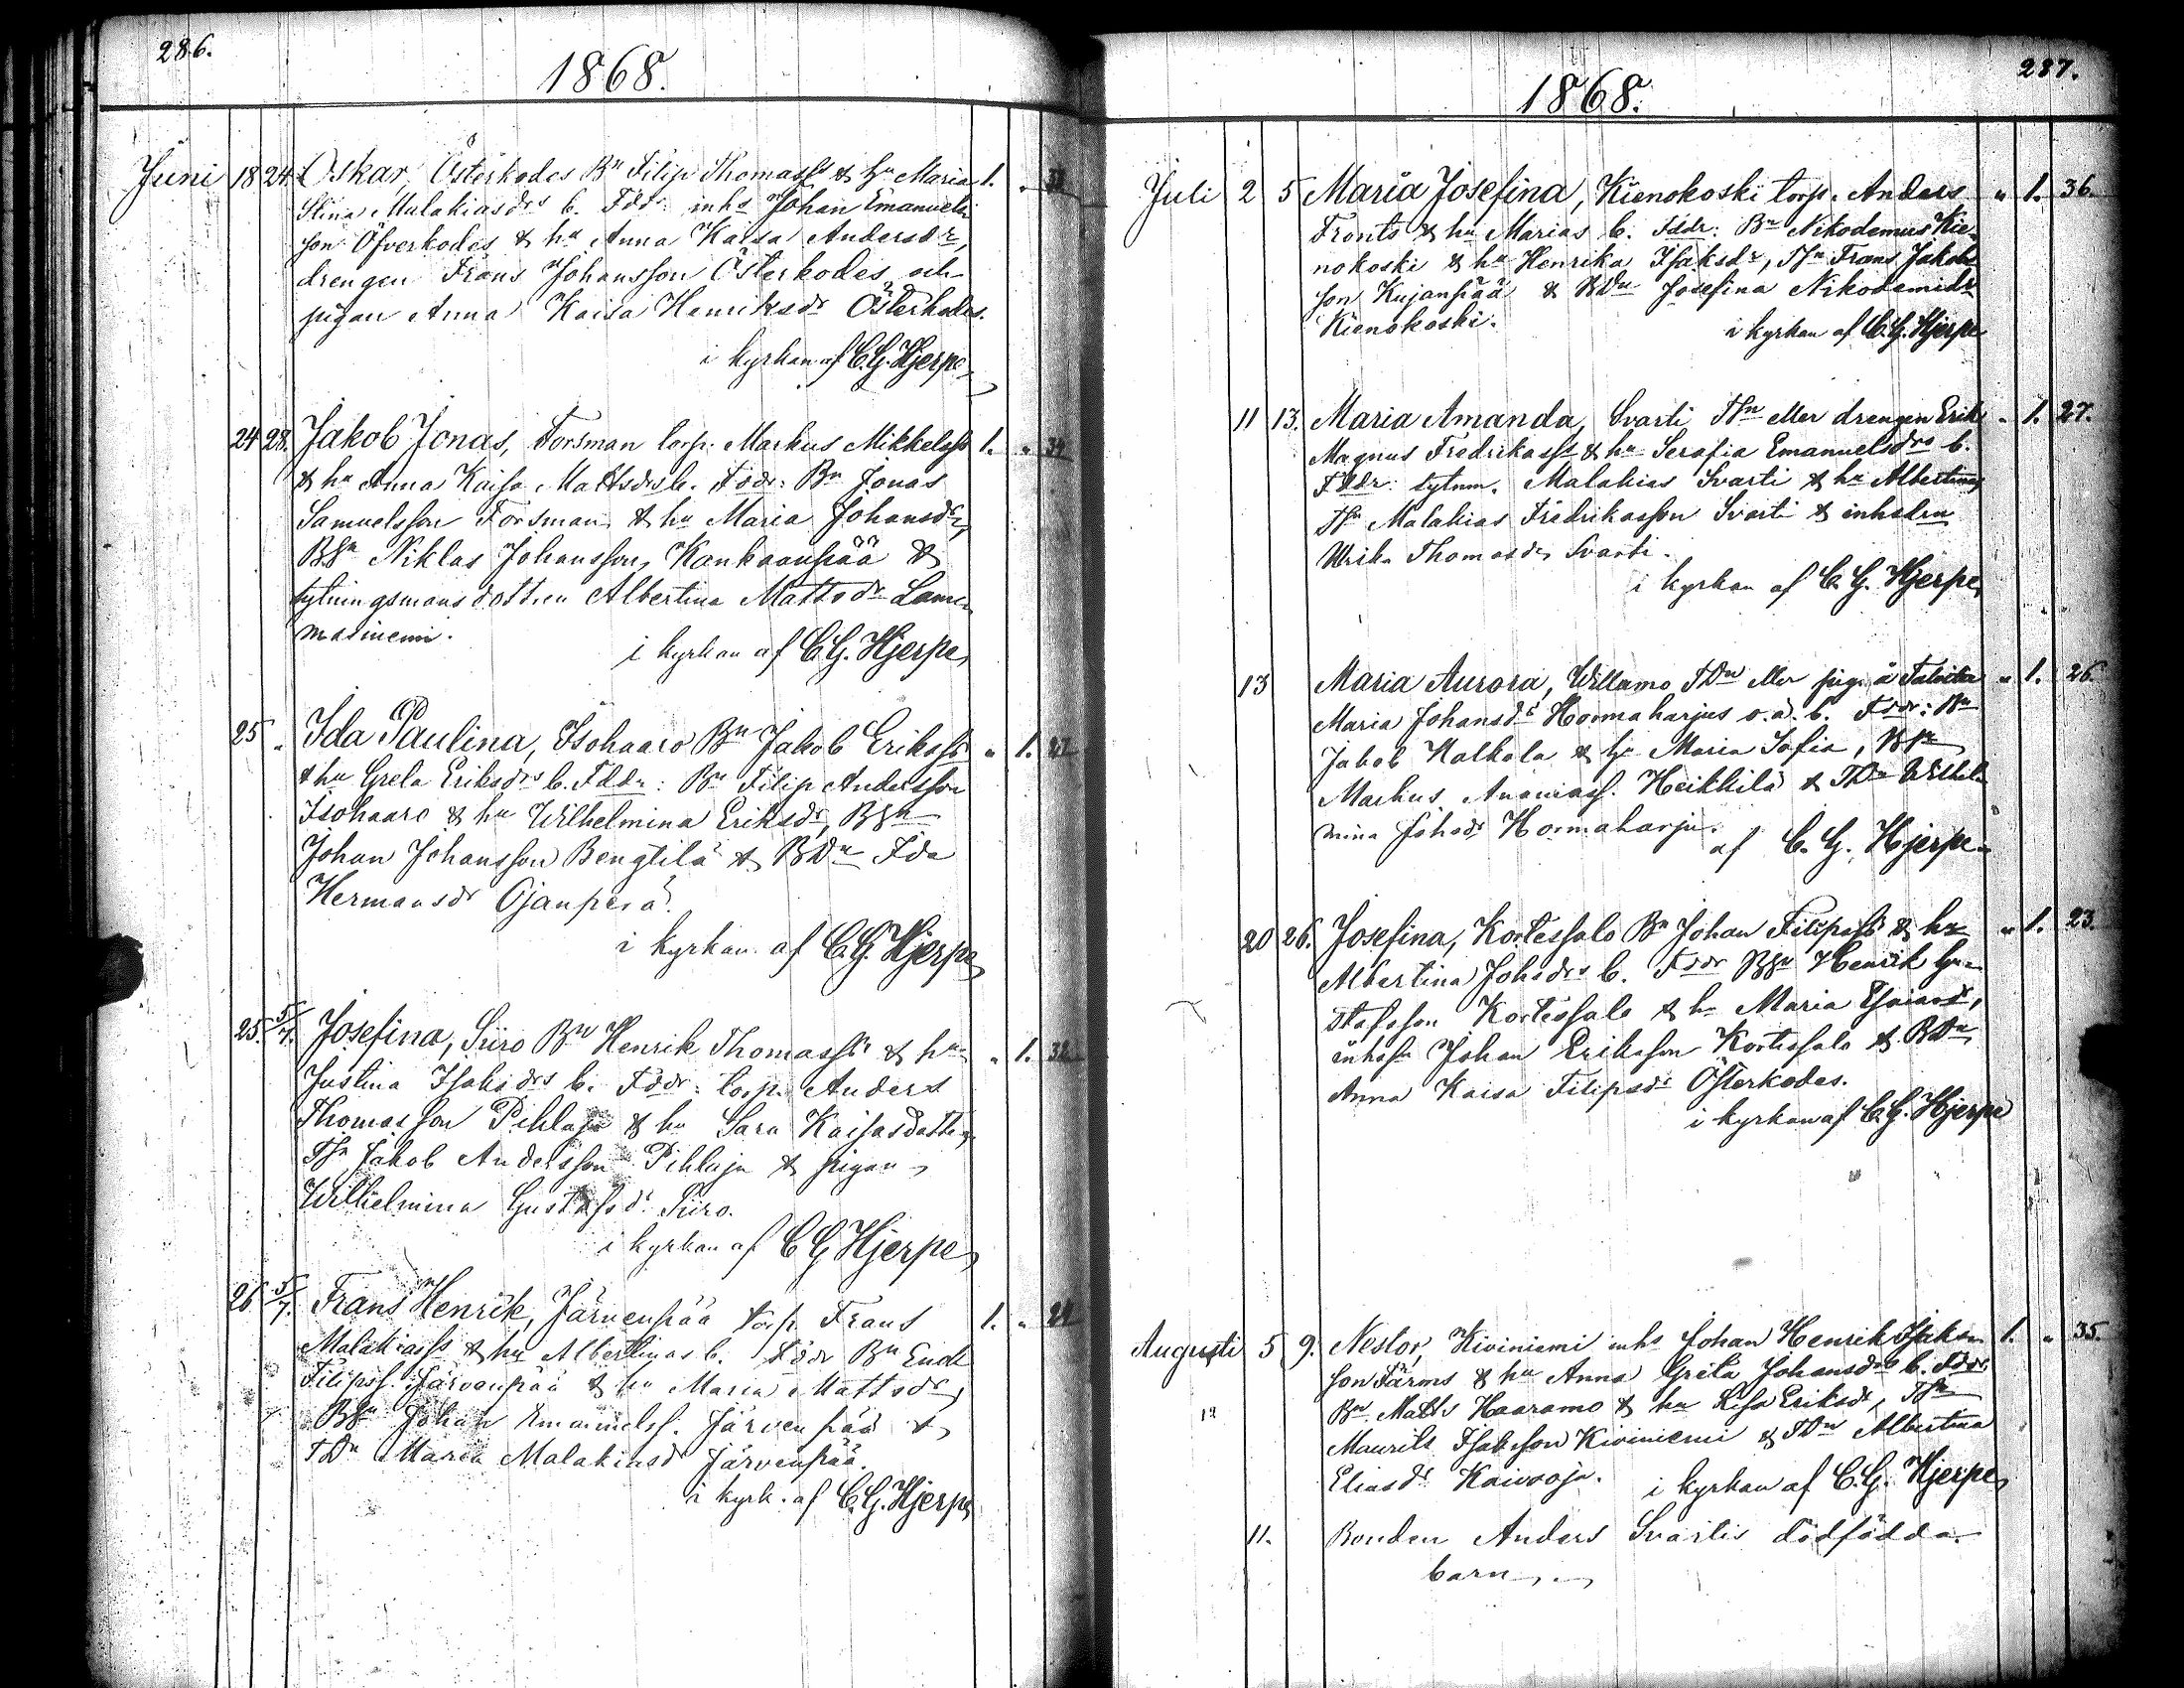 286.
1868.
Juni 18 24. Oskar, Österkodes Bn Filip Thomass & hu Maria 1. „ 33
Stina Malakiasdrs b. Fddr: inhs Johan Emanuels
son Öfverkodes & hu Anna Kaisa Andersdr,
drengen Frans Johansson Österkodes och
pigan Anna Kaisa Henriksdr Österkodes.
i kyrkan af C.G. Hjerpe
24 28. Jakob Jonas, Forsman torp. Markus Mikkelss 1. „ 34
& hu Anna Kaisa Mattsdrs b. Fddr: Bn Jonas
Samuelsson Forsman & hu Maria Johansdr,
BSn Niklas Johansson Kankaanpää &
lytningsmansdottren Albertina Mattsdr Lam-
masniemi.
i kyrkan af C.G. Hjerpe
25 „ Ida Paulina, Isohaaro Bn Jakob Erikss „ 1. 27
& hu Greta Eriksdrs b. Fddr: Bn Filip Andersson
Isohaaro & hu Wilhelmina Eriksdr, BSn
Johan Johansson Bengtilä & BDn Ida
Hermansdr Ojanperä.
i kyrkan af C.G. Hjerpe
25. 5/7. Josefina, Siiro Bn Henrik Thomass & hu „ 1. 32
Justina Isaksdrs b. Fddr: torp. Anders
Thomasson Pihlaja & hu Sara Kaisa
TSn Jakob Andersson Pihlaja & pigan
Wilhelmina Gustafsdr Siiro.
i kyrkan af C G Hjerpe
26 5/7. Frans Henrik, Järvenpää torp. Frans 1. „ 22
Malakiass & hu Albertinas b. Fddr Bn
Filipss. Järvenpää & hu Maria Mattsdr,
BSn Johan Emanuelss. Järvenpää &
TDn Maria Malakiasd Järvenpää.
i kyrk. af C.G. Hjerpe
287.
1868.
Juli 2 5 Maria Josefina, Kienokoski torp. Anders „ 1. 36.
Fronts & hu Marias b. Fddr: Bn Nikodemus Kie-
nokoski & hu Henrika Isaksdr, TSn Frans Jakobs
son Kujanpää & BDn Josefina Nikodemidr
Kienokoski.
i kyrkan af C.G. Hjerpe
11 13. Maria Amanda, Svarti TSn eller drengen Erik „ 1. 27.
Magnus Fredrikass & hu Serafia Emanuelsdrs b.
Fddr: lytnm. Malakias Svarti & hu Albertina,
TSn Malakias Fredrikasson Svarti & inhsdrn
Ulrika Thomasdr Svarti.
i kyrkan af C. G. Hjerpe
13 Maria Aurora, Willamo TDn eller pig. å „ 1. 26.
Maria Johansdr Hormaharjus o.ä. b. Fddr: Bn
Jakob Kalkala & hu Maria Sofia, BSn
Markus Ananiass. Heikkilä & TDn Wilhel-
mina Johsdr Hormaharju.
af C. G. Hjerpe
20 26. Josefina, Kortessalo Bn Johan Filipss & hu „ 1. 23.
Albertina Johsdrs b. Fddr BSn Henrik Gu-
stafsson Kortessalo & hu Maria Esaiasdr,
inhsn Johan Eriksson Kortessalo & BDn
Anna Kaisa Filipsdr Österkodes.
i kyrkan af C.G. Hjerpe
Augusti 5 9. Nestor, Kiviniemi inhs Johan Henrik Isaks- 1. „ 35.
son Färms & hu Anna Greta Johansdrs b. Fddr
Bn Matts Haaramo & hu Lisa Eriksdr, TSn
Maurits Isaksson Kiviniemi & TDn Albertina
Eliasdr Kaivooja. i kyrkan af C.G. Hjerpe
11. Bonden Anders Svartis dödfödda
barn